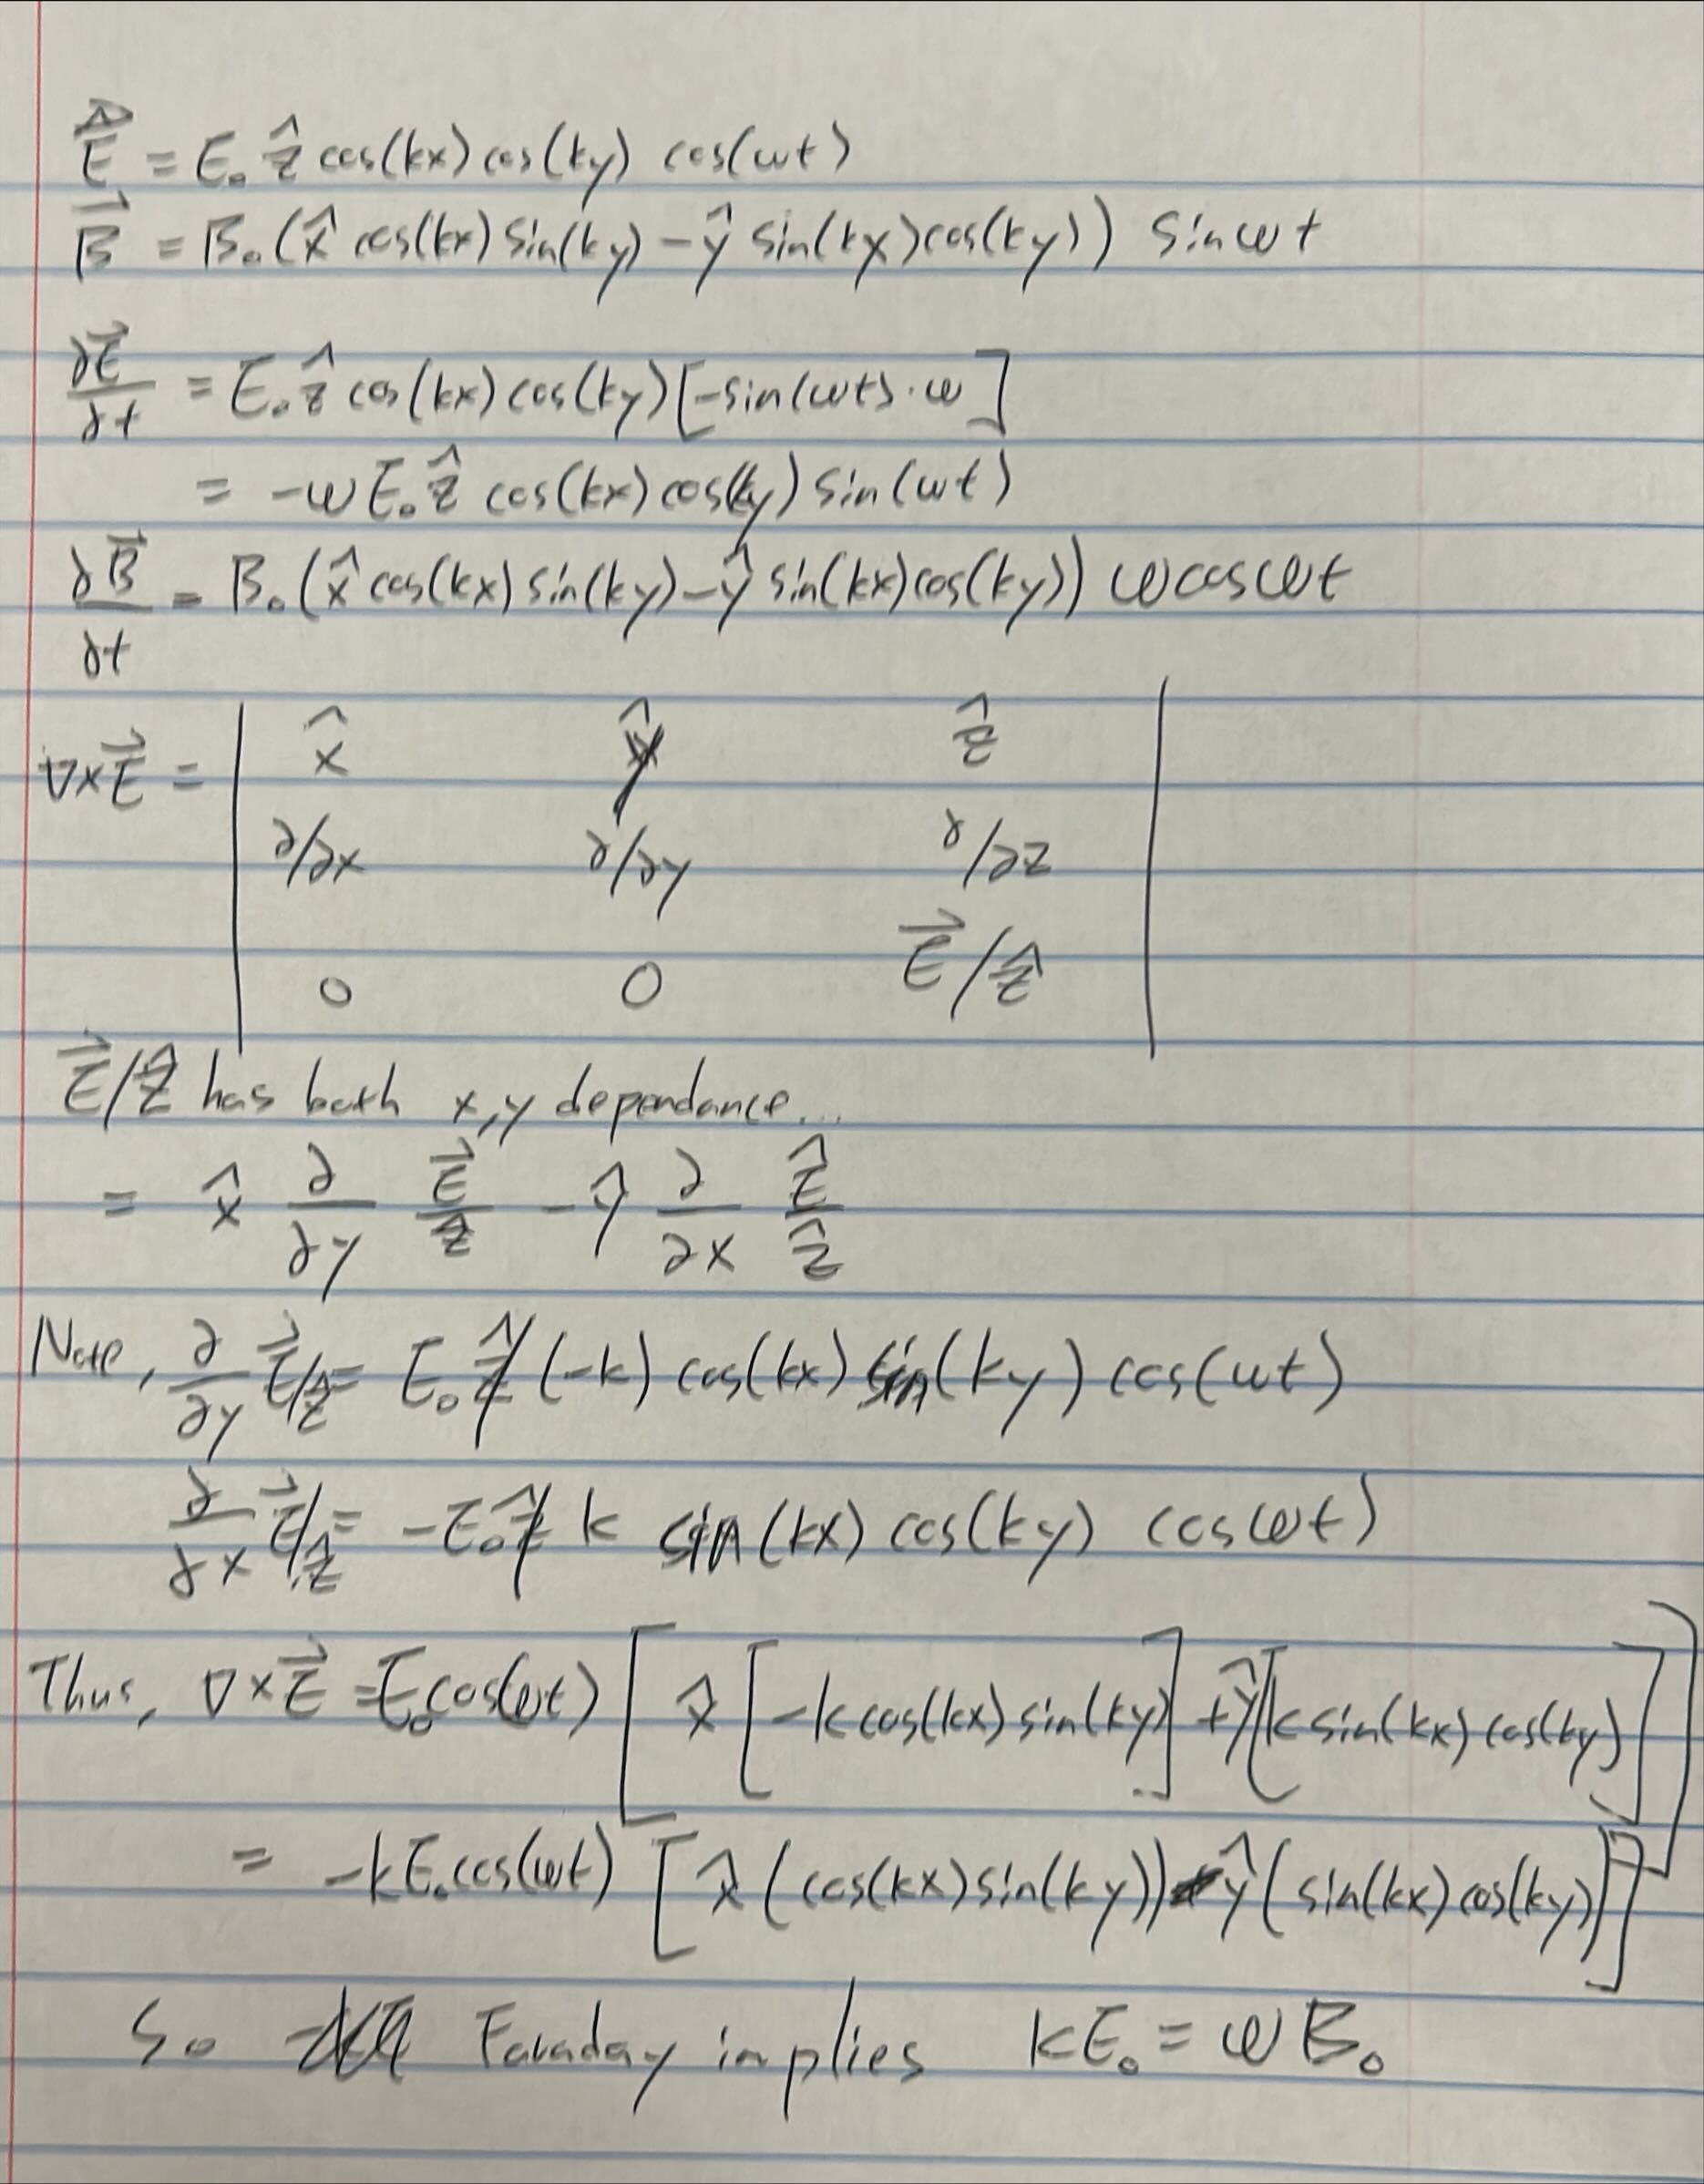 E⃗ = E₀ ẑ cos(kx) cos(ky) cos(ωt)
B⃗ = B₀ (x̂ cos(kx) sin(ky) - ŷ sin(kx) cos(ky)) sin ωt
∂E⃗/∂t = E₀ ẑ cos(kx) cos(ky) [-sin(ωt)·ω]
= -ω E₀ ẑ cos(kx) cos(ky) sin(ωt)
∂B⃗/∂t = B₀ (x̂ cos(kx) sin(ky) - ŷ sin(kx) cos(ky)) ω cos ωt
∇×E⃗ = | x̂ ŷ ẑ |
| ∂/∂x ∂/∂y ∂/∂z |
| 0 0 E⃗/ẑ |
E⃗/ẑ has both x,y dependance...
= x̂ ∂/∂y E⃗/ẑ - ŷ ∂/∂x E⃗/ẑ
Note, ∂/∂y E⃗/ẑ = E₀ ẑ (-k) cos(kx) sin(ky) cos(ωt)
∂/∂x E⃗/ẑ = -E₀ ẑ k sin(kx) cos(ky) cos ωt)
Thus, ∇×E⃗ = E₀ cos(ωt) [ x̂ [-k cos(kx) sin(ky)] + ŷ [k sin(kx) cos(ky)] ]
= -kE₀ cos(ωt) [ x̂ (cos(kx) sin(ky)) - ŷ (sin(kx) cos(ky)) ]
So Faraday implies kE₀ = ωB₀